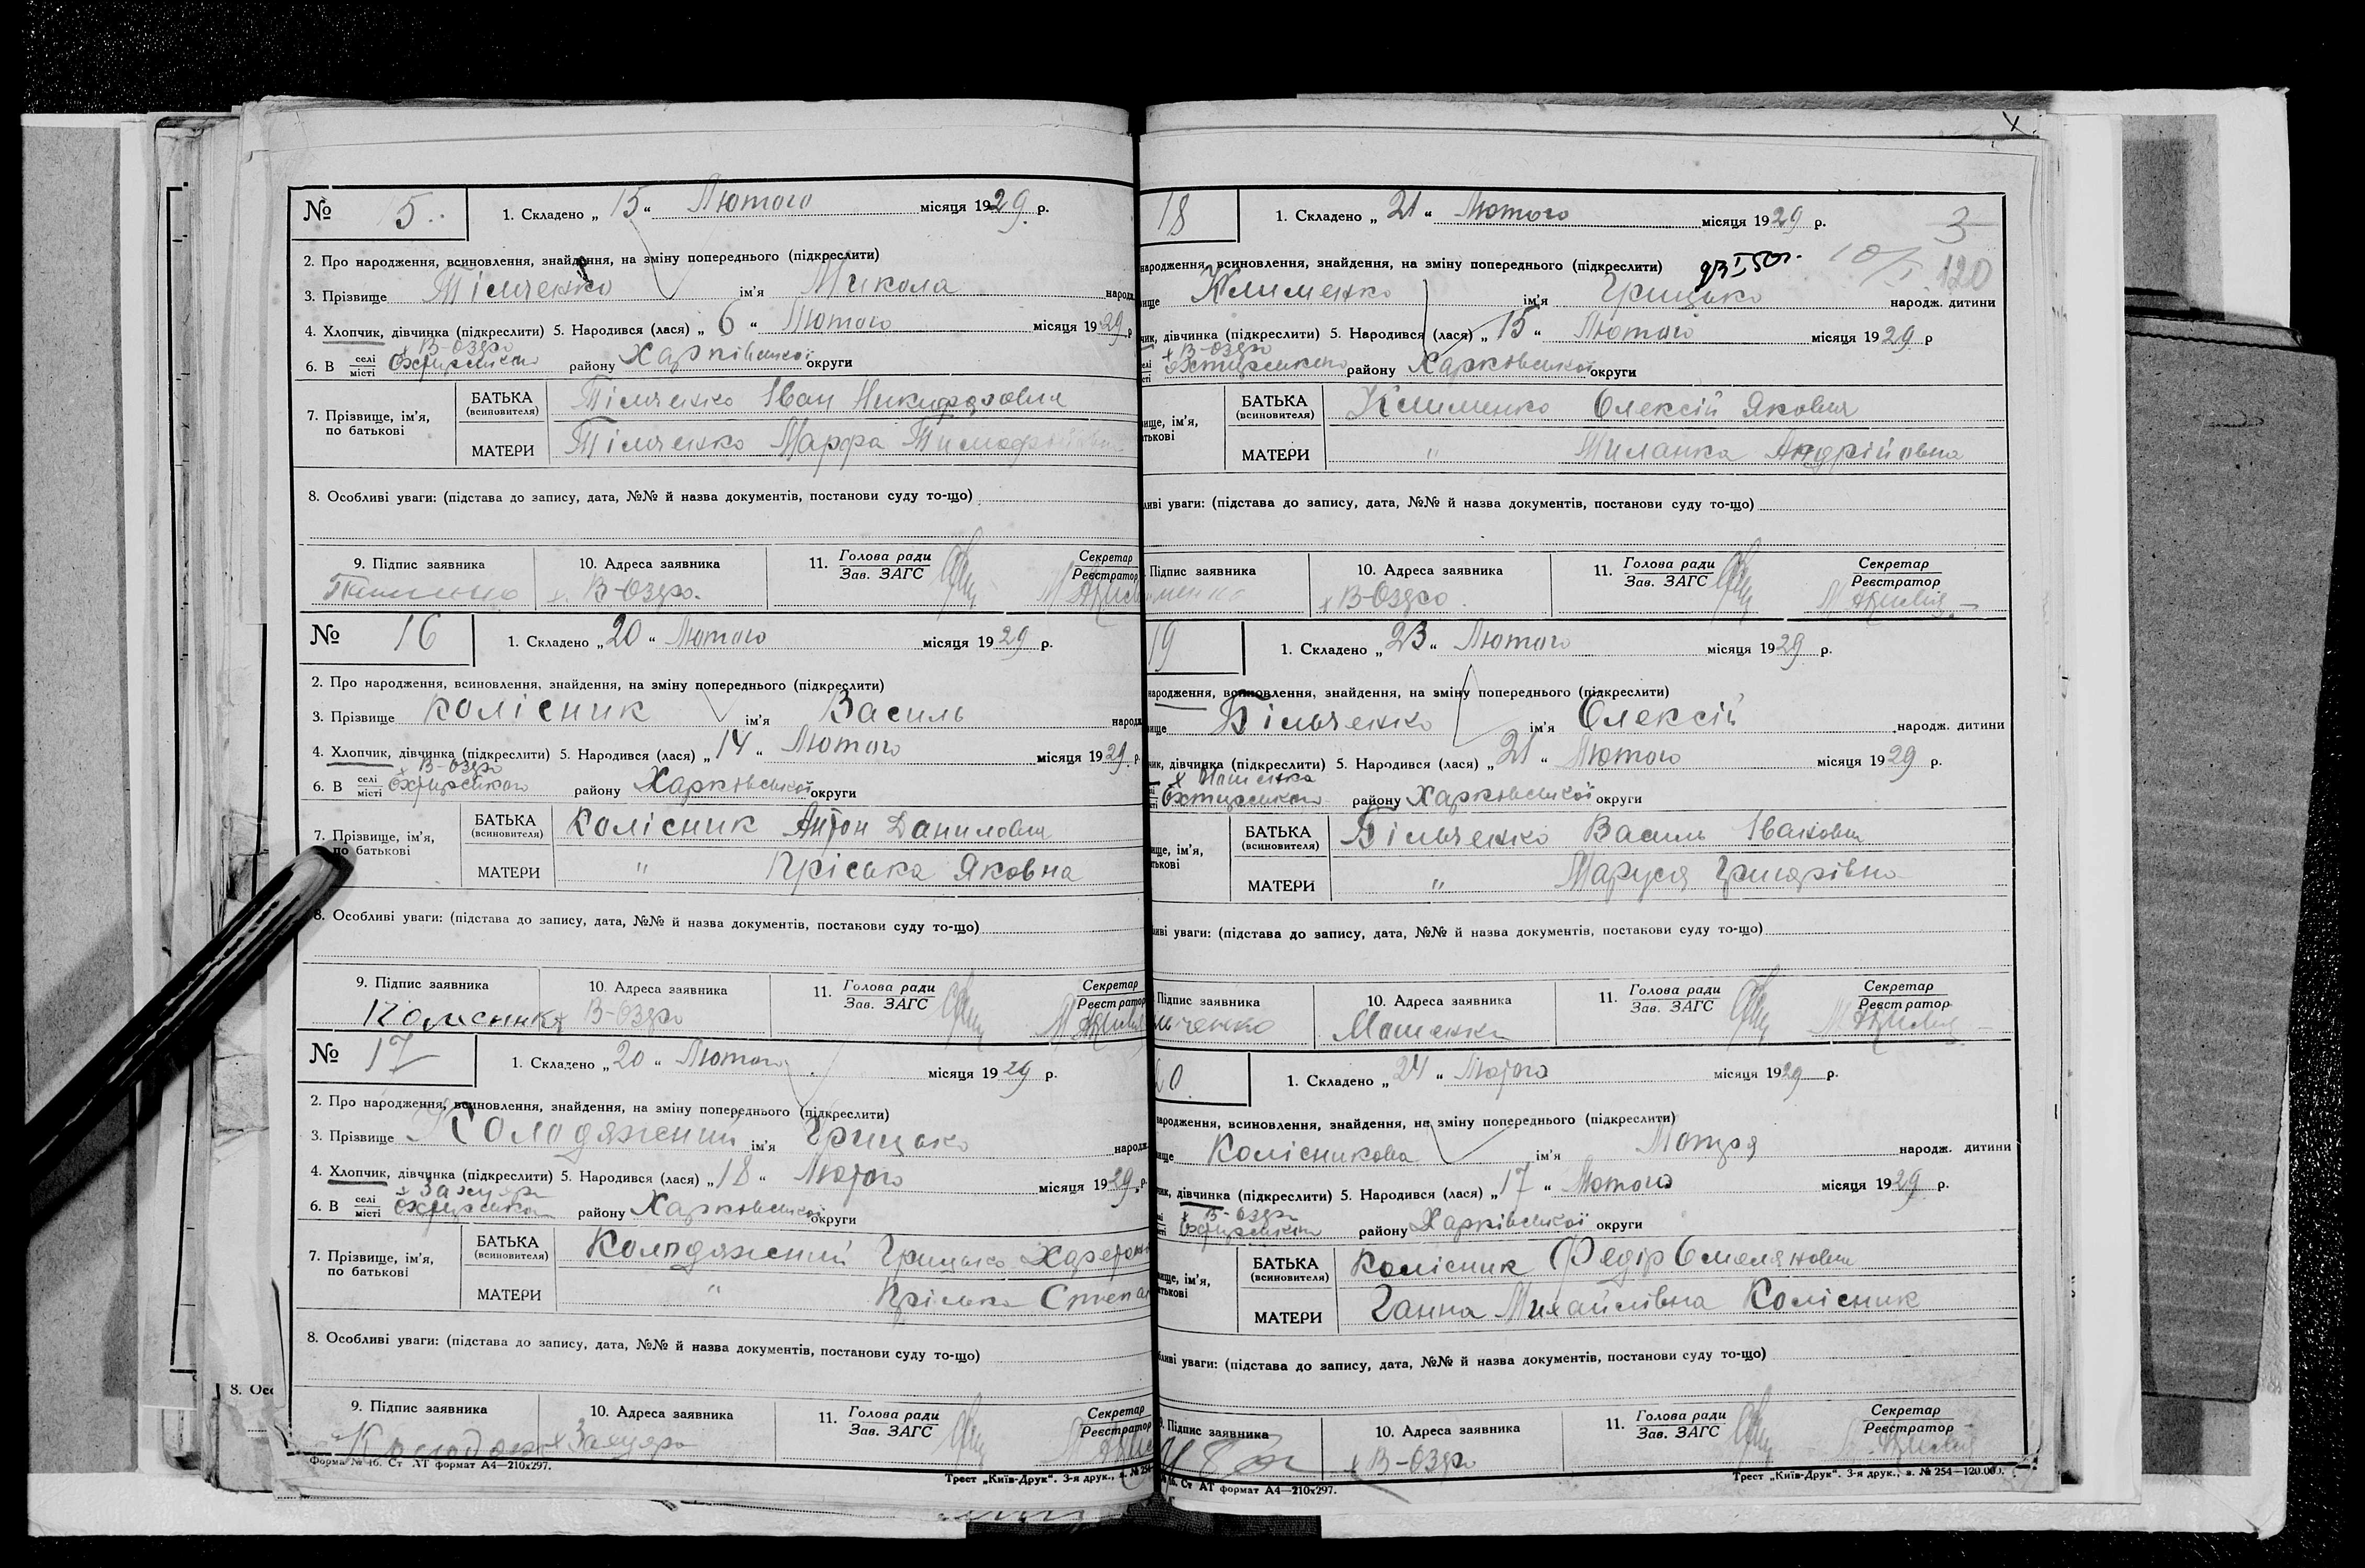 № 15 1. Складено „ 15 “ Лютого місяця 1929 р.
2. Про народження, всиновлення, знайдення, на зміну попереднього (підкреслити)
3. Прізвище Тімченко ім'я Микола народж
4. Хлопчик, дівчинка (підкреслити) 5. Народився (лася) „ 6 “ Лютого місяця 1929 р
х В-Озеро
6. В селі місті Охтирського району Харківської округи
7. Прізвище, ім'я, по батькові
БАТЬКА (всиновителя) Тімченко Іван Никифорович
МАТЕРИ Тімченко Марфа
8. Особливі уваги: (підстава до запису, дата, №№ й назва документів, постанови суду то-що)
9. Підпис заявника 10. Адреса заявника 11. Голова ради Зав. ЗАГС Секретар Реєстратор
х. В-Озеро.
№ 16 1. Складено „ 20 “ Лютого місяця 1929 р.
2. Про народження, всиновлення, знайдення, на зміну попереднього (підкреслити)
3. Прізвище Колісник ім'я Василь народж
4. Хлопчик, дівчинка (підкреслити) 5. Народився (лася) „ 14 “ Лютого місяця 1929 р.
х В-Озеро
6. В селі місті Охтирського району Харковської округи
7. Прізвище, ім'я, по батькові
БАТЬКА (всиновителя) Колісник Антон Данилович
МАТЕРИ " Пріська Яковна
8. Особливі уваги: (підстава до запису, дата, №№ й назва документів, постанови суду то-що)
9. Підпис заявника 10. Адреса заявника 11. Голова ради Зав. ЗАГС Секретар Реєстратор
Колісник х В-Озеро
№ 17 1. Складено „ 20 “ Лютого місяця 1929 р.
2. Про народження, всиновлення, знайдення, на зміну попереднього (підкреслити)
3. Прізвище Колодяжний ім'я Грицько народж
4. Хлопчик, дівчинка (підкреслити) 5. Народився (лася) „ 18 “ Лютого місяця 1929 р.
6. В селі місті Охтирського району Харковської округи
7. Прізвище, ім'я, по батькові
БАТЬКА (всиновителя) Колодяжний Грицько
МАТЕРИ " Пріська
8. Особливі уваги: (підстава до запису, дата, №№ й назва документів, постанови суду то-що)
9. Підпис заявника 10. Адреса заявника 11. Голова ради Зав. ЗАГС Секретар Реєстратор
Форма № 16. Ст АТ формат А4—210х297.
Трест „Київ-Друк“. 3-я друк., з. № 254
18 1. Складено „ 21 “ Лютого місяця 1929 р.
3
120
народження, всиновлення, знайдення, на зміну попереднього (підкреслити)
вище Клименко ім'я Грицько народж. дитини
чик, дівчинка (підкреслити) 5. Народився (лася) „ 15 “ Лютого місяця 1929 р
х В-Озеро
Охтирського району Харковської округи
вище, ім'я, атькові
БАТЬКА (всиновителя) Клименко Олексій Якович
МАТЕРИ " Миланка Андрійовна
ливі уваги: (підстава до запису, дата, №№ й назва документів, постанови суду то-що)
Підпис заявника 10. Адреса заявника 11. Голова ради Зав. ЗАГС Секретар Реєстратор
менко х В-Озеро
19 1. Складено „ 23 “ Лютого місяця 1929 р.
народження, всиновлення, знайдення, на зміну попереднього (підкреслити)
вище Більченко ім'я Олексій народж. дитини
чик, дівчинка (підкреслити) 5. Народився (лася) „ 21 “ Лютого місяця 1929 р.
Охтирського району Харковської округи
вище, ім'я, атькові
БАТЬКА (всиновителя) Більченко Василь Іванович
МАТЕРИ " Маруся Григорівна
ливі уваги: (підстава до запису, дата, №№ й назва документів, постанови суду то-що)
Підпис заявника 10. Адреса заявника 11. Голова ради Зав. ЗАГС Секретар Реєстратор
льченко
20 1. Складено „ 24 “ Лютого місяця 1929 р.
народження, всиновлення, знайдення, на зміну попереднього (підкреслити)
вище Колісникова ім'я Мотря народж. дитини
чик, дівчинка (підкреслити) 5. Народився (лася) „ 17 “ Лютого місяця 1929 р.
х В-Озеро
Охтирського району Харківської округи
вище, ім'я, атькові
БАТЬКА (всиновителя) Колісник Федір Омелянович
МАТЕРИ Ганна Михайлівна Колісник
бливі уваги: (підстава до запису, дата, №№ й назва документів, постанови суду то-що)
9. Підпис заявника 10. Адреса заявника 11. Голова ради Зав. ЗАГС Секретар Реєстратор
х В-Озеро
16. Ст АТ формат А4—210х297.
Трест „Київ-Друк“. 3-я друк., з. № 254—120.000.
8. Осо